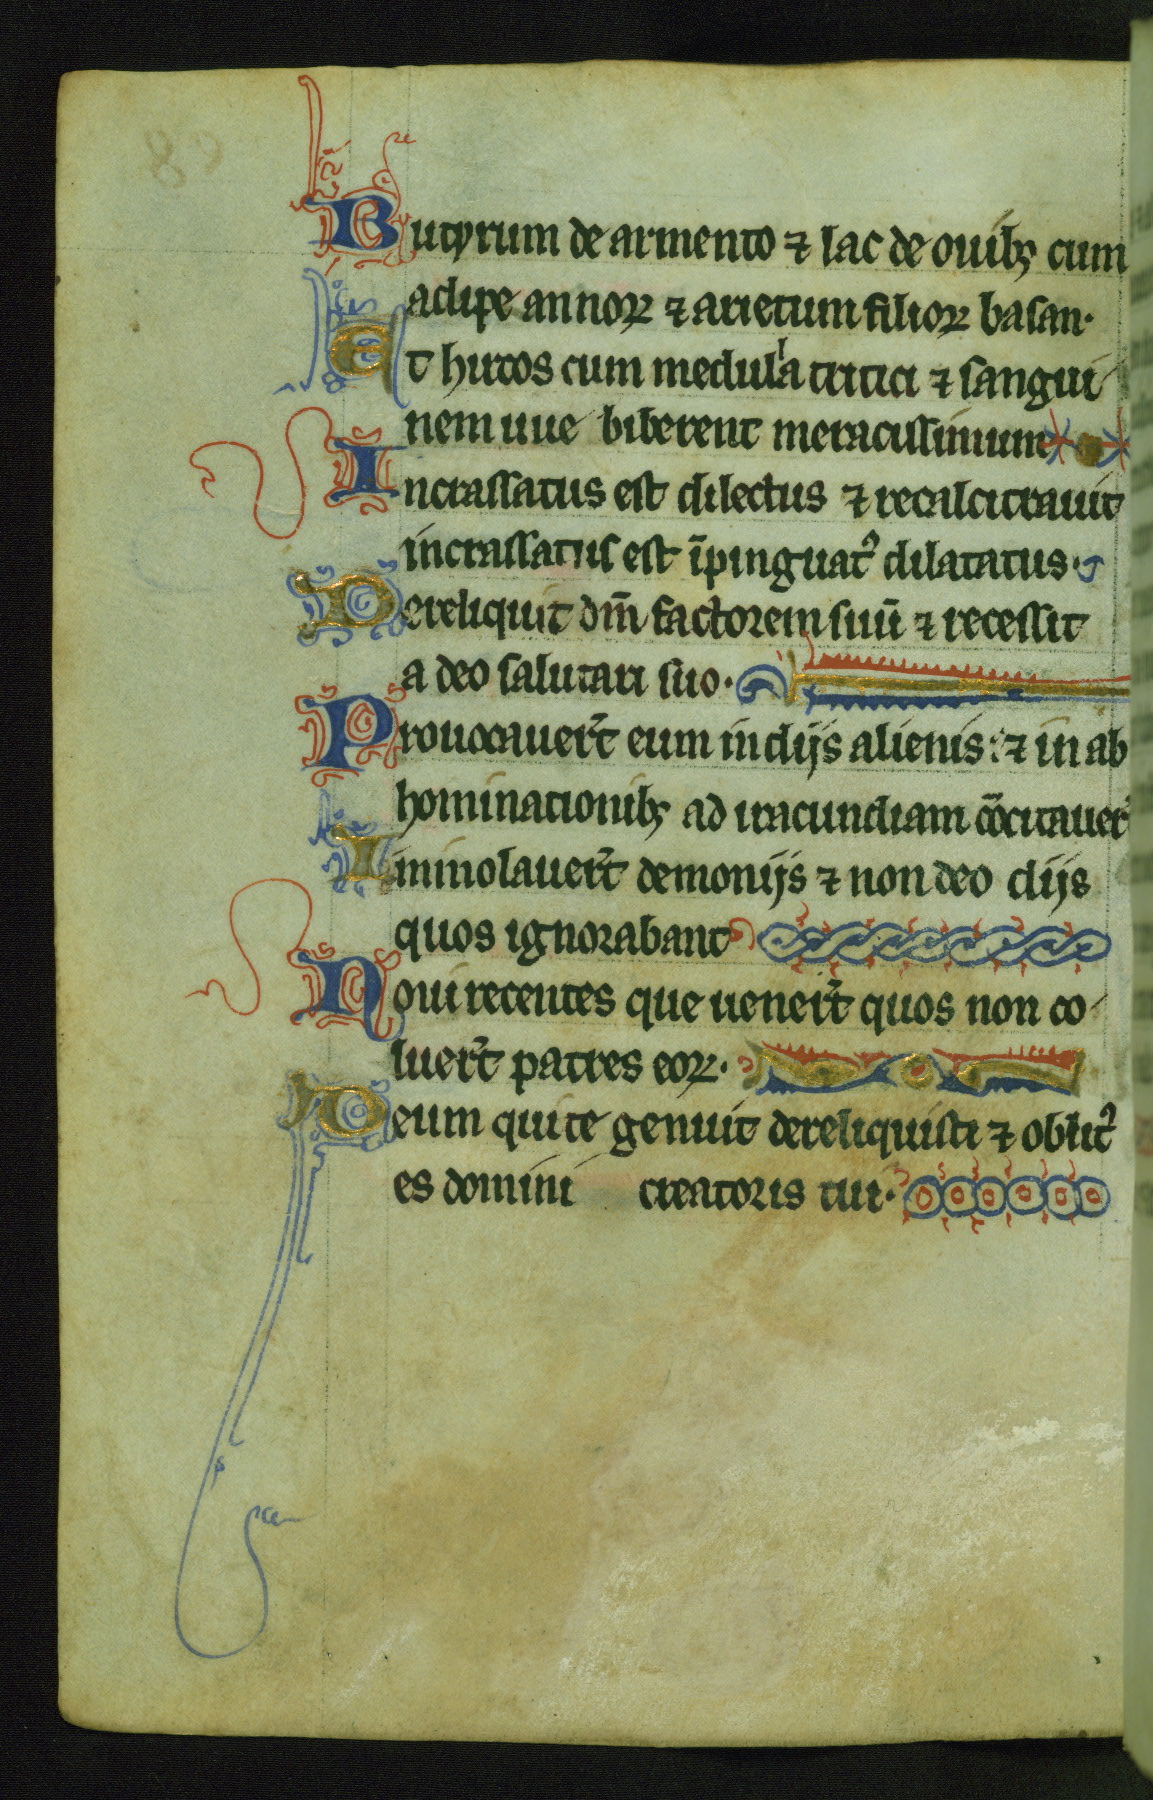 Butyrum de armento ⁊ lac de ouibꝫ cum
adipe annoꝝ ⁊ arietum filioꝝ basan·
Et hircos cum medulla tritici ⁊ sangui
nem uue biberent meracissimum
Incrassatus est dilectus ⁊ recalcitrauit
incrassatus est īpinguatꝰ dilatatus·
Dereliquit dm̄ factorem suū ⁊ recessit
a deo salutari suo·
Prouocauer̄t eum in dijs alienis: ⁊ in ab
hominationibꝫ ad iracundiam cōcitauer̄
Immolauer̄t demonijs ⁊ non deo dijs
quos ignorabant
Noui recentes que uener̄t quos non co
luer̄t patres eoꝝ·
Deum qui te genuit dereliquisti ⁊ oblitꝰ
es domini creatoris tui·